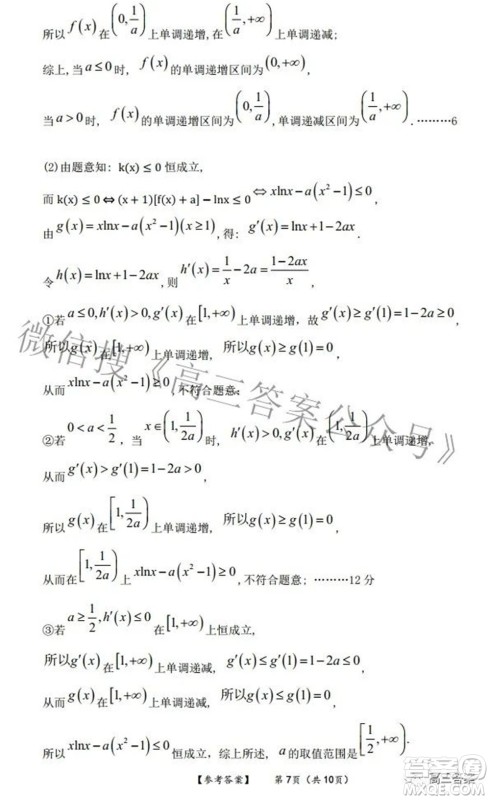 所以 f(x) 在 (0, 1/a) 上单调递增,在 (1/a, +∞) 上单调递减;
综上,当 a≤0 时, f(x) 的单调递增区间为 (0,+∞),
当 a>0 时, f(x) 的单调递增区间为 (0, 1/a),单调递减区间为 (1/a, +∞). ………6
(2) 由题意知: k(x) ≤ 0 恒成立,
而 k(x) ≤ 0 ⇔ (x + 1)[f(x) + a] − lnx ≤ 0 ⇔ xlnx − a(x²−1) ≤ 0,
由 g(x) = xlnx − a(x²−1)(x≥1), 得: g′(x) = lnx + 1 − 2ax.
令 h(x) = lnx + 1 − 2ax, 则 h′(x) = 1/x − 2a = (1−2ax)/x,
①若 a≤0, h′(x)>0, g′(x) 在 [1,+∞) 上单调递增, 故 g′(x) ≥ g′(1) = 1−2a ≥ 0,
所以g(x) 在 [1,+∞) 上单调递增, 所以g(x) ≥ g(1) = 0,
从而 xlnx − a(x²−1) ≥ 0, 不符合题意;
②若 0<a<1/2, 当 x∈(1, 1/2a) 时, h′(x)>0, g′(x) 在 (1, 1/2a) 上单调递增,
从而 g′(x) > g′(1) = 1−2a > 0,
所以 g(x) 在 [1, 1/2a) 上单调递增, 所以g(x) ≥ g(1) = 0,
从而在 [1, 1/2a) 上 xlnx − a(x²−1) ≥ 0, 不符合题意; ………12 分
③若 a≥1/2, h′(x)≤0 在 [1,+∞) 上恒成立,
所以g′(x) 在 [1,+∞) 上单调递减, g′(x) ≤ g′(1) = 1−2a ≤ 0,
从而 g(x) 在 [1,+∞) 上单调递减, 所以g(x) ≤ g(1) = 0,
所以 xlnx − a(x²−1) ≤ 0 恒成立, 综上所述, a 的取值范围是 [1/2, +∞).
【参考答案】 第 7页(共 10页)
微信搜《高三答案公众号》
高三答案